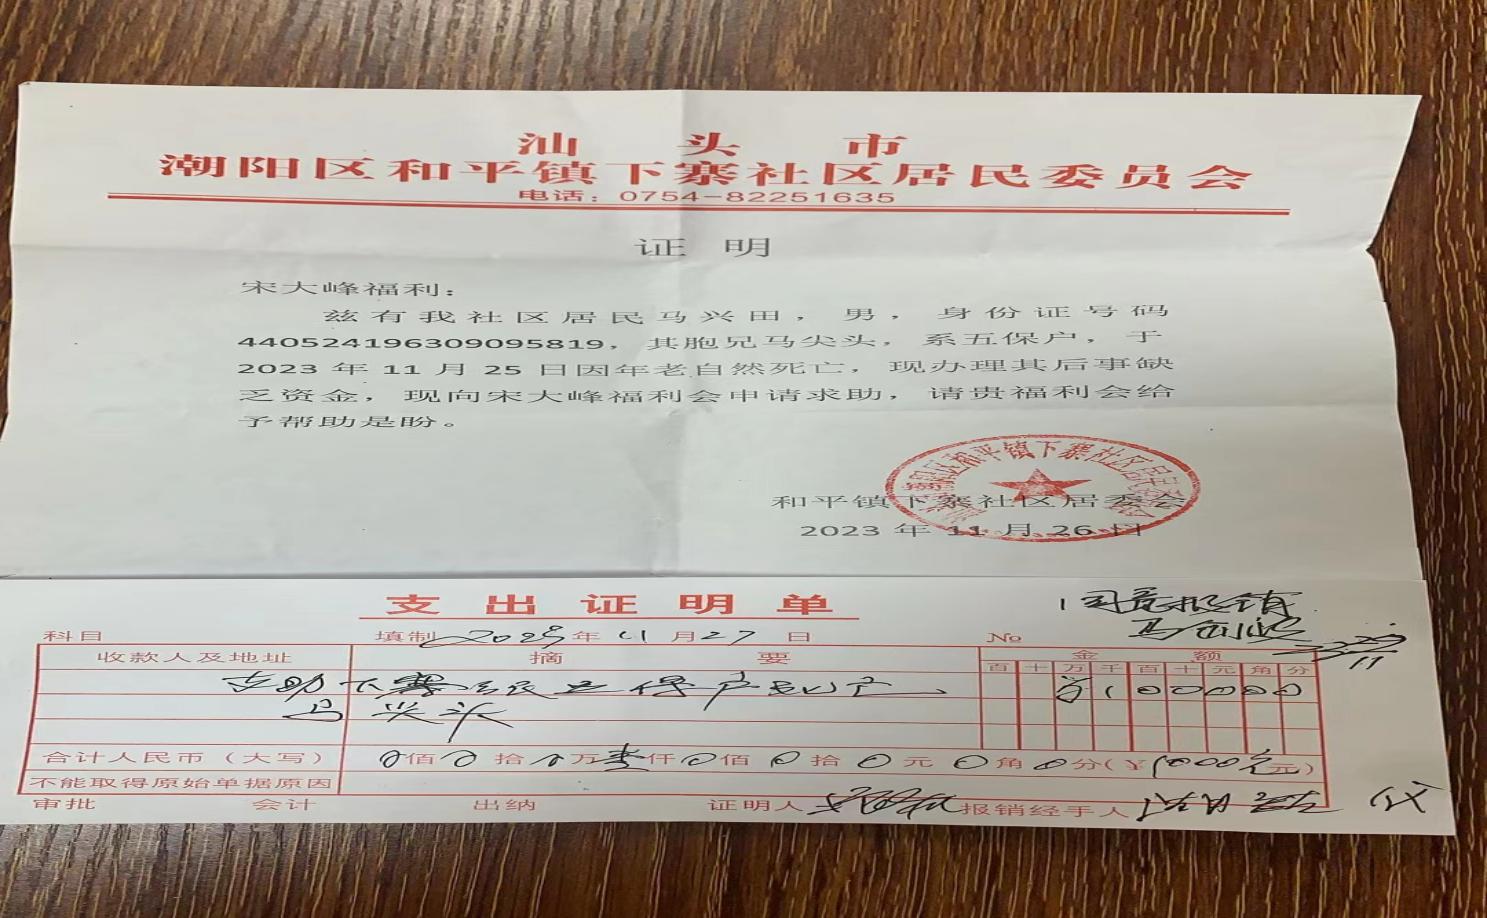 汕头市
潮阳区和平镇下寨社区居民委员会
电话：0754-82251635
证明
宋大峰福利：
兹有我社区居民马兴田，男，身份证号码
440524196309095819，其胞兄马尖头，系五保户，于
2023 年 11 月 25 日因年老自然死亡，现办理其后事缺
乏资金，现向宋大峰福利会申请求助，请贵福利会给
予帮助是盼。
潮阳区和平镇下寨社区居民委员会
和平镇下寨社区居委会
2023 年 11 月 26 日
支出证明单
同意报销
科目 填制 2023 年 11 月 27 日 No
收款人及地址 摘要 金额
百 十 万 千 百 十 元 角 分
助下寨 五保户 亡
马 头
合计人民币（大写） 0 佰 0 拾 0 万 壹 仟 0 佰 0 拾 0 元 0 角 0 分（¥ 1000 元）
不能取得原始单据原因
审批 会计 出纳 证明人 报销经手人